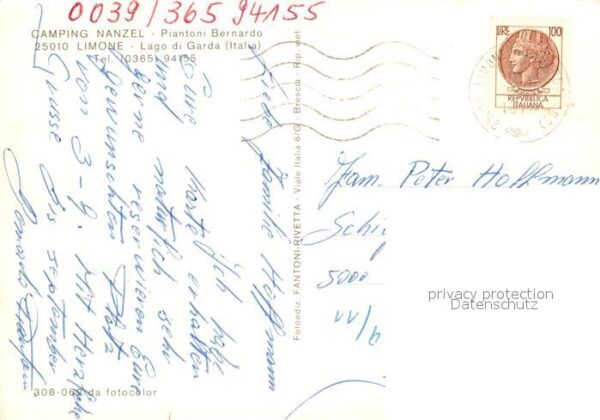 0039/365 94155
CAMPING NANZEL - Piantoni Bernardo
25010 LIMONE - Lago di Garda (Italia)
Tel. (0365) 94155
Liebe Familie Hoffmann
Ich habe
Eure Karte erhalten
und natürlich
gerne reservieren Eure
gewünschten Platz
vom 3-9. Mit Herzliche
Grüsse bis september
Fotoediz. FANTONI-RIVETTA - Viale Italia 6/G - Brescia - Rip. viet.
308-06 da fotocolor
LIRE 100
REPVBBLICA
ITALIANA
Fam. Peter Hoffmann
Schi
5000
9/11
privacy protection
Datenschutz